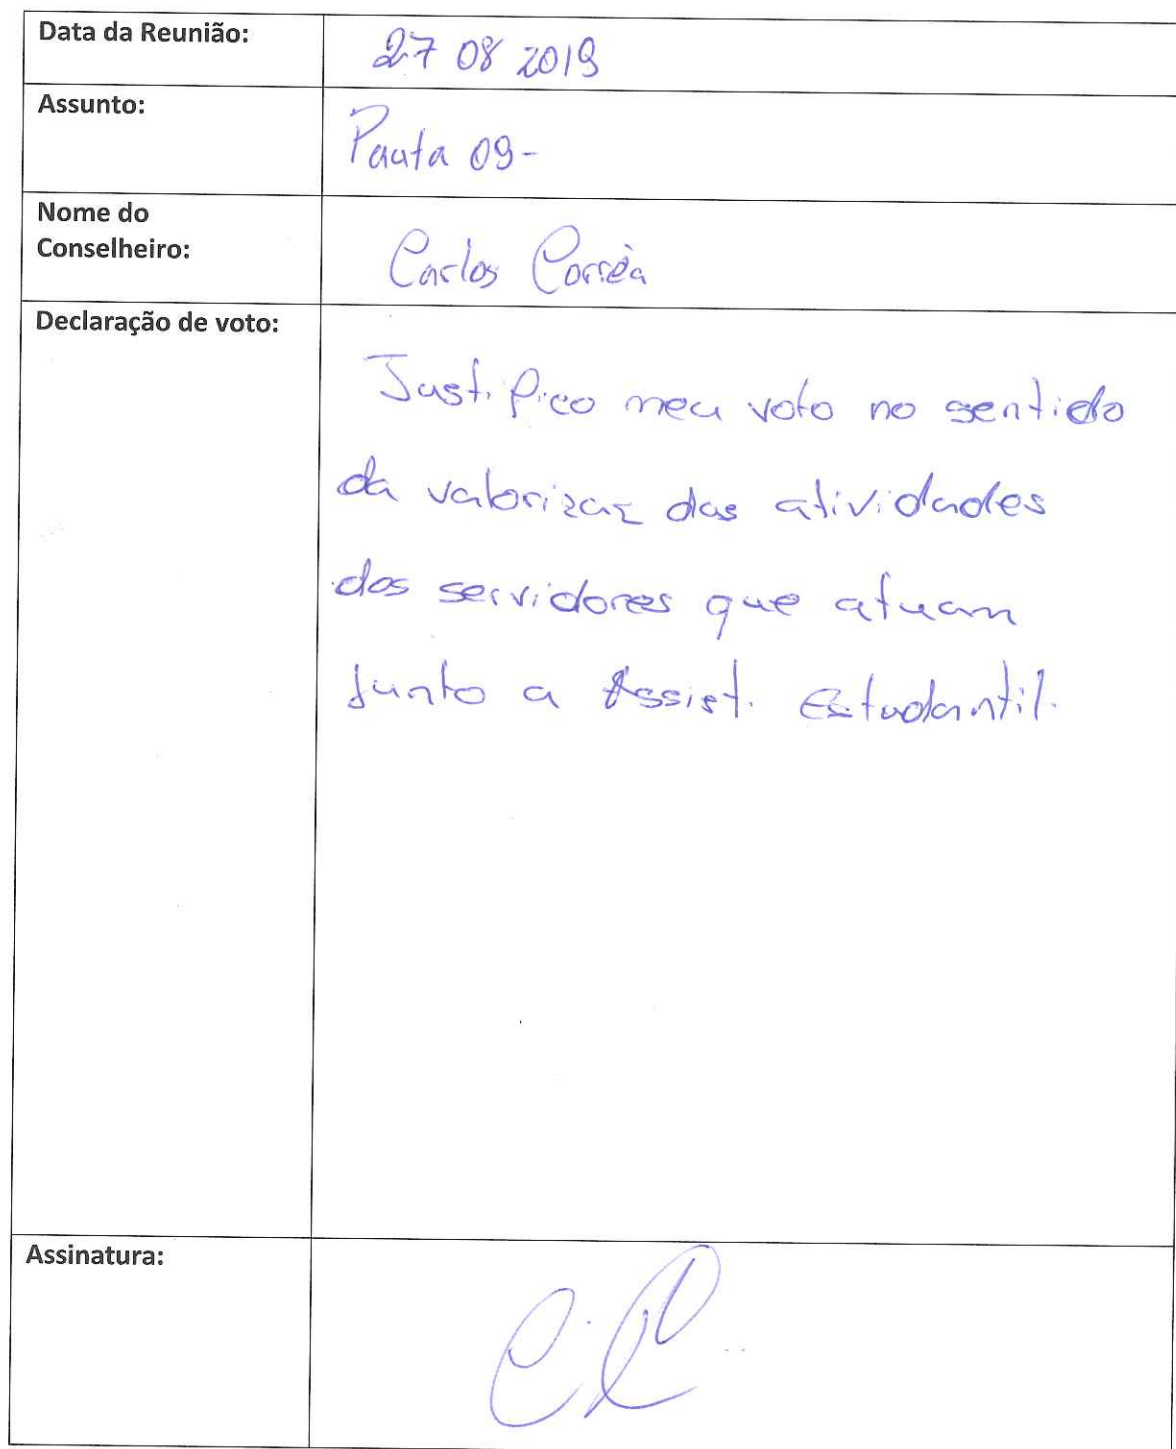 Data da Reunião: 27 08 2019
Assunto: Pauta 09-
Nome do
Conselheiro: Carlos Corrêa
Declaração de voto:
Justifico meu voto no sentido
da valorizar das atividades
dos servidores que atuam
junto a Assist. Estudantil.
Assinatura: